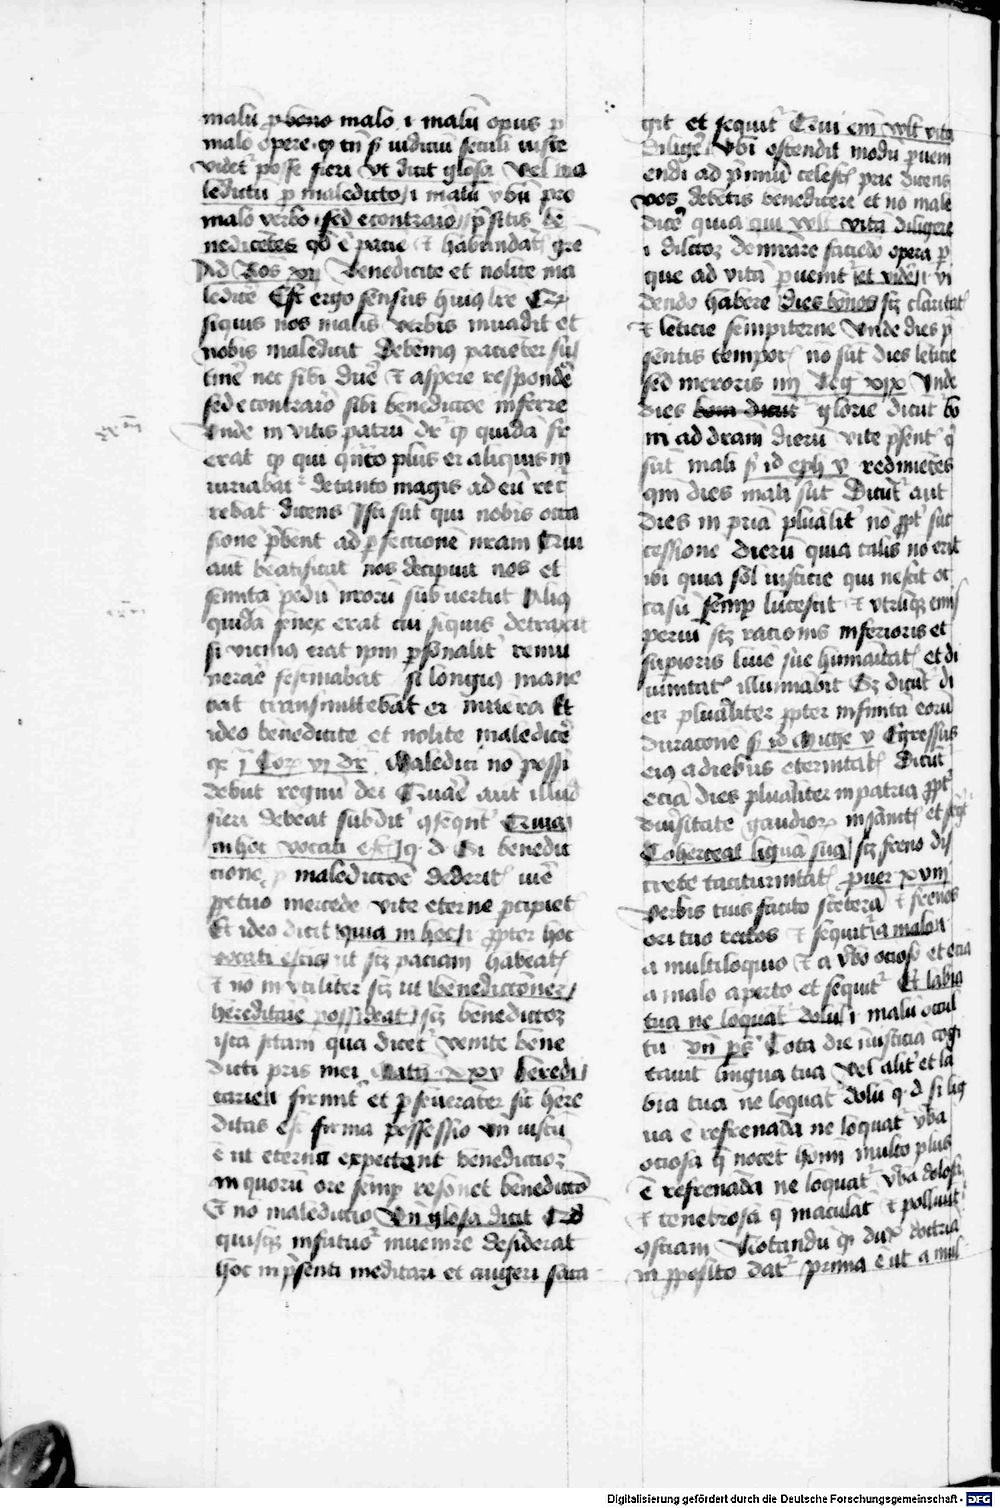 malū p bono malo .i. malū opus p
malo opere · qꝫ tn̄ s iudiciū seculi iuste
videt᷑ posse fieri vt dicit glosa vel ma
ledictū p maledicto .i. malū vbū pro
malo verbo · sed econtrario psitis be
nedicētes qd ē pacie et habundāt gre
Ad Ros xii Benedicite et nolite ma
ledicē Est ergo sensus huiꝰ lr̄e Qꝫ
siquis nos malis verbis inuadit et
nobis maledicit Debemꝰ pacieter sus
tinē nec sibi dure et aspere respondē
sed econtrario sibi benedictoē inferre
Vnde in vitis patrū dr̄ qꝫ quidā fr̄
erat qꝫ qui qn̄to plus ei aliquis in
iuriabat᷑ detanto magis ad eū rec̄
rebat dicens Isti sūt qui nobis occa
sione p̄bent ad pfectione nr̄am Qui
aūt beatificāt nos decipiūt nos et
semita pedū nr̄orū subuertūt Aliꝰ
quidā senex erat cui siquis detraxit
si vicinꝰ erat ip̄m psonalit᷑ remu
nerāe festinabat si longiꝰ mane
bat transmittebat ei munera Et
ideo benedicite et nolite maledicē
qꝫ i Cor vi dr̄ Maledici nō possi
debūt regnū dei Quāe aūt illud
fieri debeat subdit᷑ qseqn̄t᷑ Quia
in hoc vocati estis q. d. Si benedic
tione p maledictoē dederit᷑
petuo mercede vite eterne pcipiet᷑
Et ideo dicit quia in hoc .i. ppter hoc
vocati estis ut scꝫ paciam habeat᷑
et nō inutiliter scꝫ ut benedictoneꝫ
hereditāe possideat᷑ scꝫ benedictoꝫ
ista sitam qua dicet᷑ venite bene
dicti pris mei Math xxv heredi
tarie .i. firmit᷑ et pseueranter sic here
ditas est firma possessio Vn̄ iustū
ē ut eternā expectant benedictoꝫ
in quorū ore semp resonet benedictō
Et nō maledictio Vn̄ glosa dicit Qd
quisqꝫ in futuro inuenire desiderat
hoc in p̄senti meditari et augeri sata
git et sequit᷑ Qui em̄ vult vitā
diligē Vbi ostendit modū puem
endi ad p̄miū celeste prie dicens
vos debetis benedicere et nō male
dicē quia qui vult vitā diligere
.i. dilctoꝫ demrāre faciēdo opera p
que ad vitā puemt᷑ et vide .i. vi
dendo habere dies bonos scꝫ claritat᷑
et leticie sempiterne Vnde dies p̄
sentis tempor᷑ nō sūt dies leticie
sed meroris iiij Reg xix Vnde
dies glorie dicūt bo
ni ad dr̄am dierū vite p̄sent᷑ q̄
sūt mali s id eph v redimētes
qm̄ dies mali sūt Dicūt᷑ aūt
dies in priā pluralit᷑ nō ppt᷑ suc
cessione dierū quia talis nō erit
ibi quia sol iusticie qui nescit oc
casū semp lucescit et vtrūqꝫ emis
perui scꝫ racionis inferioris et
supioris siue sue humanitat᷑ et di
uinitat᷑ illuminabit Sꝫ dicūt᷑ di
es pluraliter ppter infinitā eorū
duracōne s id Miche v Egressus
eiꝰ adiebus eternitat᷑ Dicūt᷑
ecia dies pluraliter in patria ppt᷑
diuersitatē gaudioꝝ in sanct᷑ et seqt᷑
Coherceat liguā suā scꝫ freno dis
crete taciturnitat᷑ puer xviij
Verbis tuis facito staterā et frenos
ori tuo rectos et sequit᷑ a malo .i.
a multiloquio et a vbo ocioso et ecia
a malo aperto et sequit᷑ Et labia
tua ne loquāt᷑ dolū .i. malū occul
tū vn̄ ps Tota die iniusticia cogi
tauit lingua tua Vel alit᷑ et la
bia tua ne loquat᷑ dolū q. d. si lig
ua ē refrenāda ne loquat᷑ vba
ociosa q̄ nocet hoīi multo plus
ē refrenāda ne loquat᷑ vba dolosa
et tenebrosa q̄ maculāt et polluūt
qsciam Notandū qꝫ dux doctria
in pposito dat᷑ prima ē ut a mul
Digitalisierung gefördert durch die Deutsche Forschungsgemeinschaft - DFG